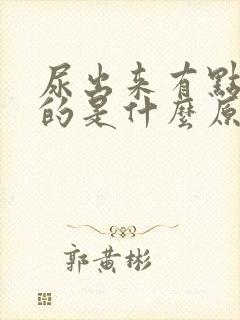 尿出来有點
的是什麼原
郭黄彬